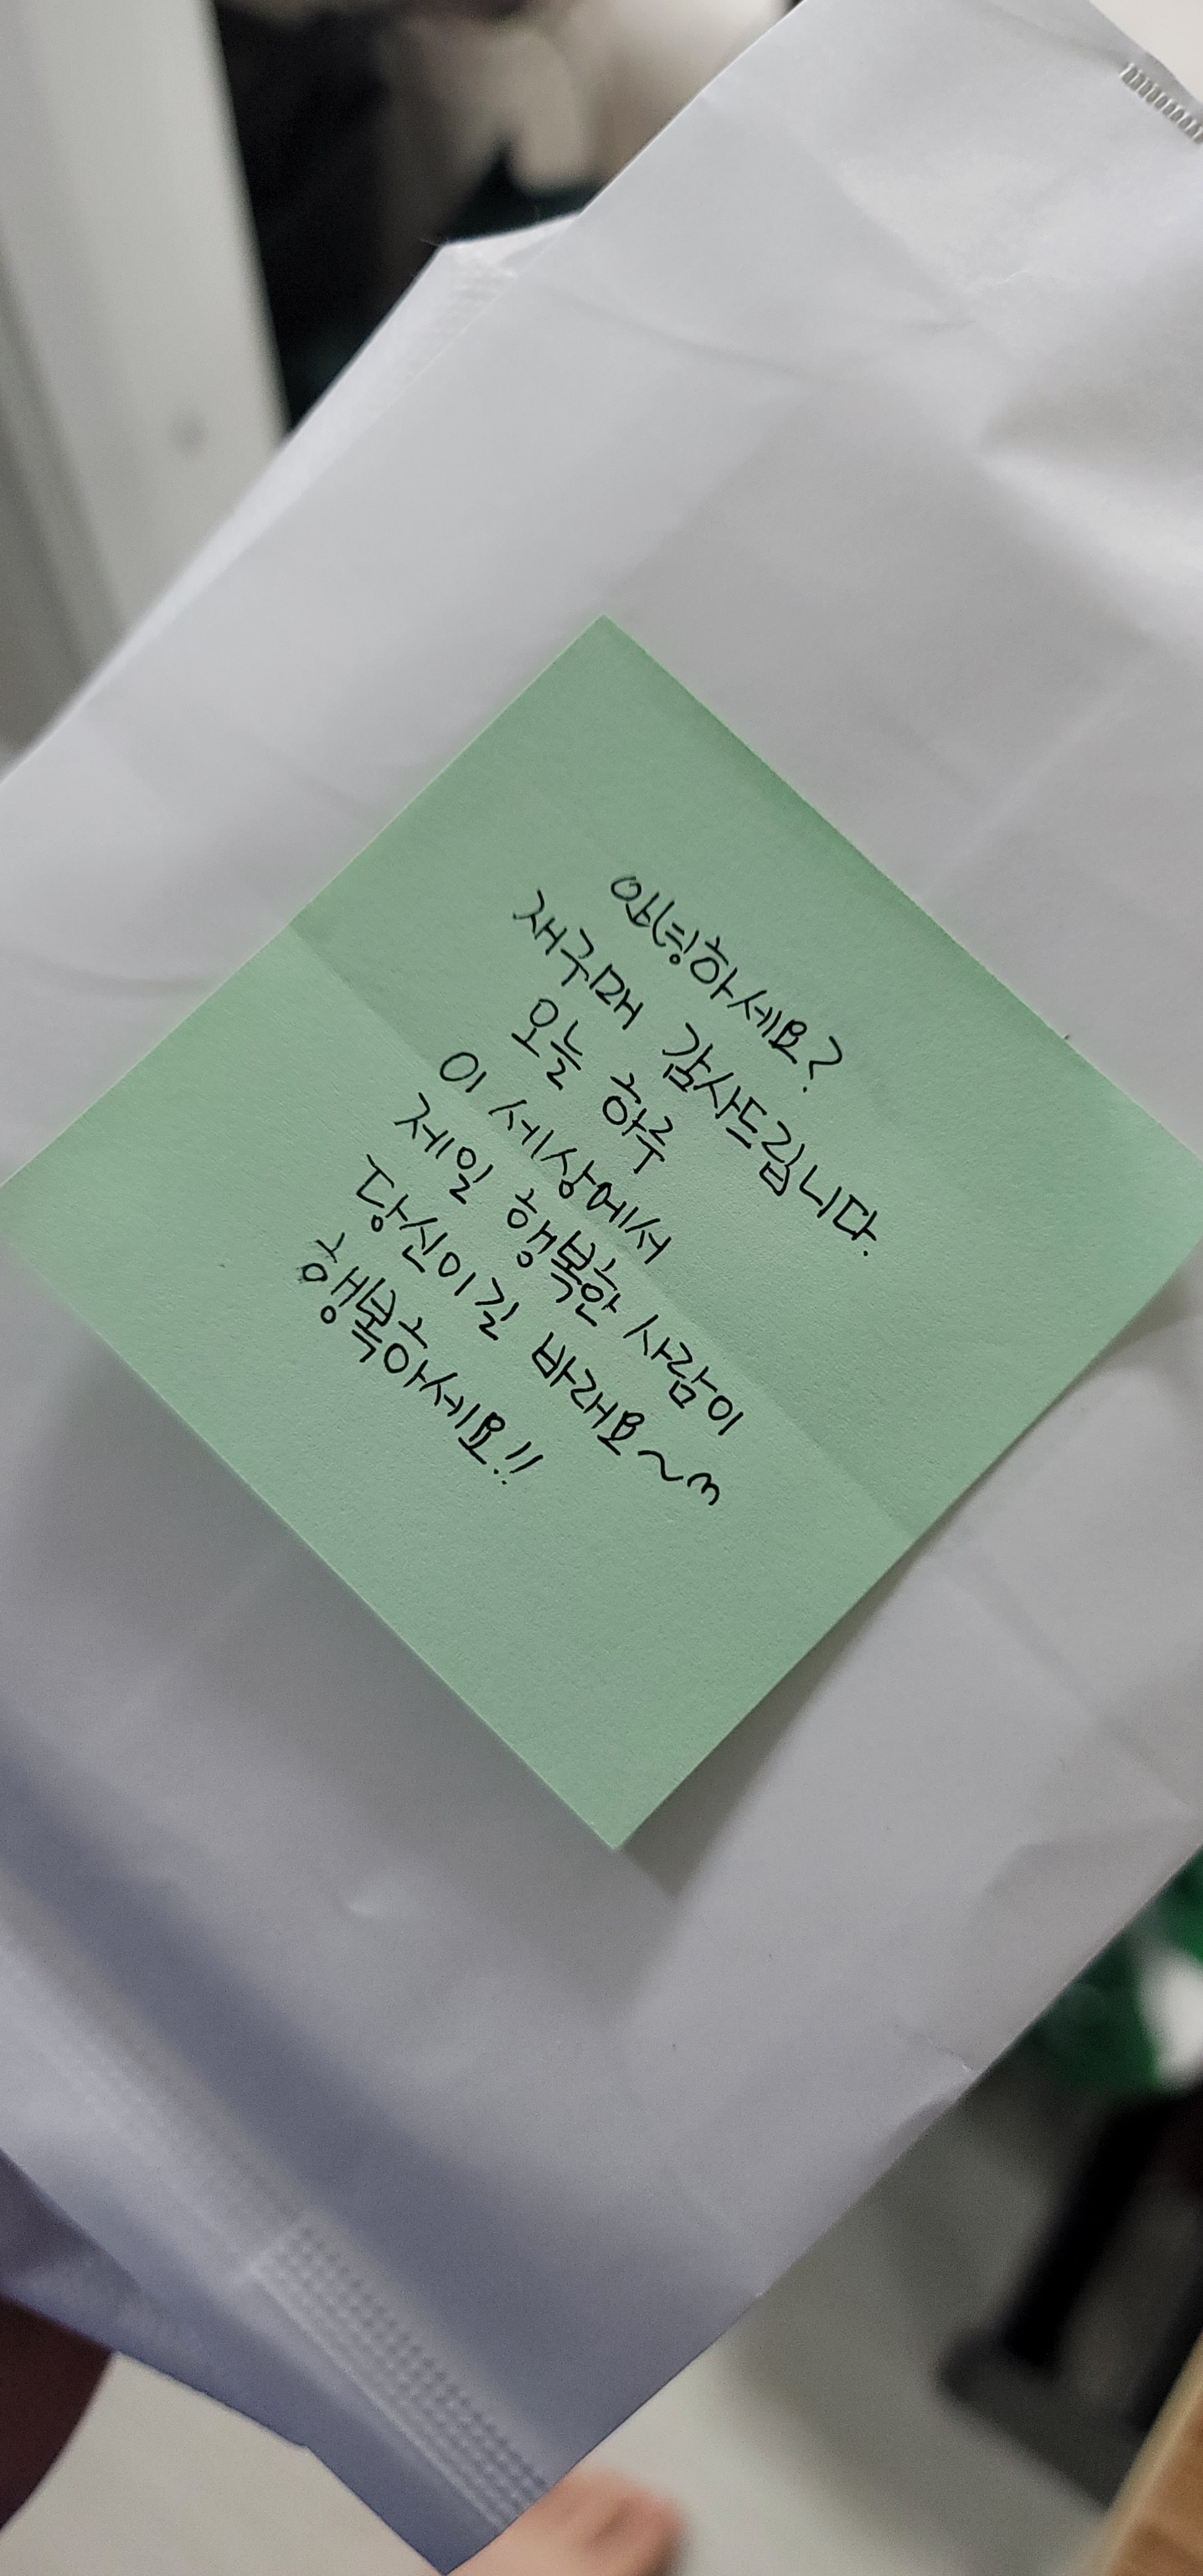 안녕하세요?
재구매 감사드립니다.
오늘 하루
이 세상에서
제일 행복한 사람이
당신이길 바래요~^^
행복하세요!!